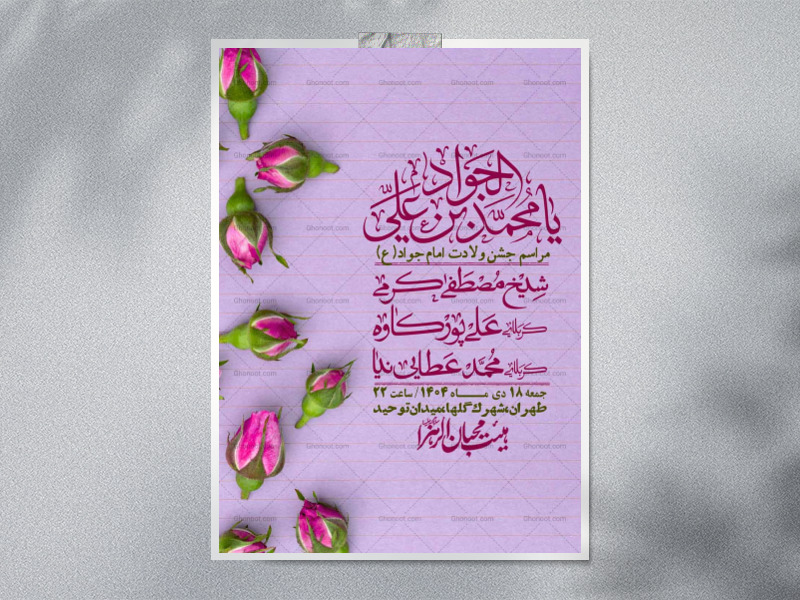 یا محمد بن علی الجواد
مراسم جشن ولادت امام جواد (ع)
شیخ مصطفی کرمی
کربلایی علی پورکاوه
کربلایی محمد عطایی نیا
جمعه ۱۸ دی مــاه ۱۴۰۴ / ساعت ۲۲
طهران، شهرک گلها، میدان توحید
هیئت محبان الزهرا
Ghonoot.com